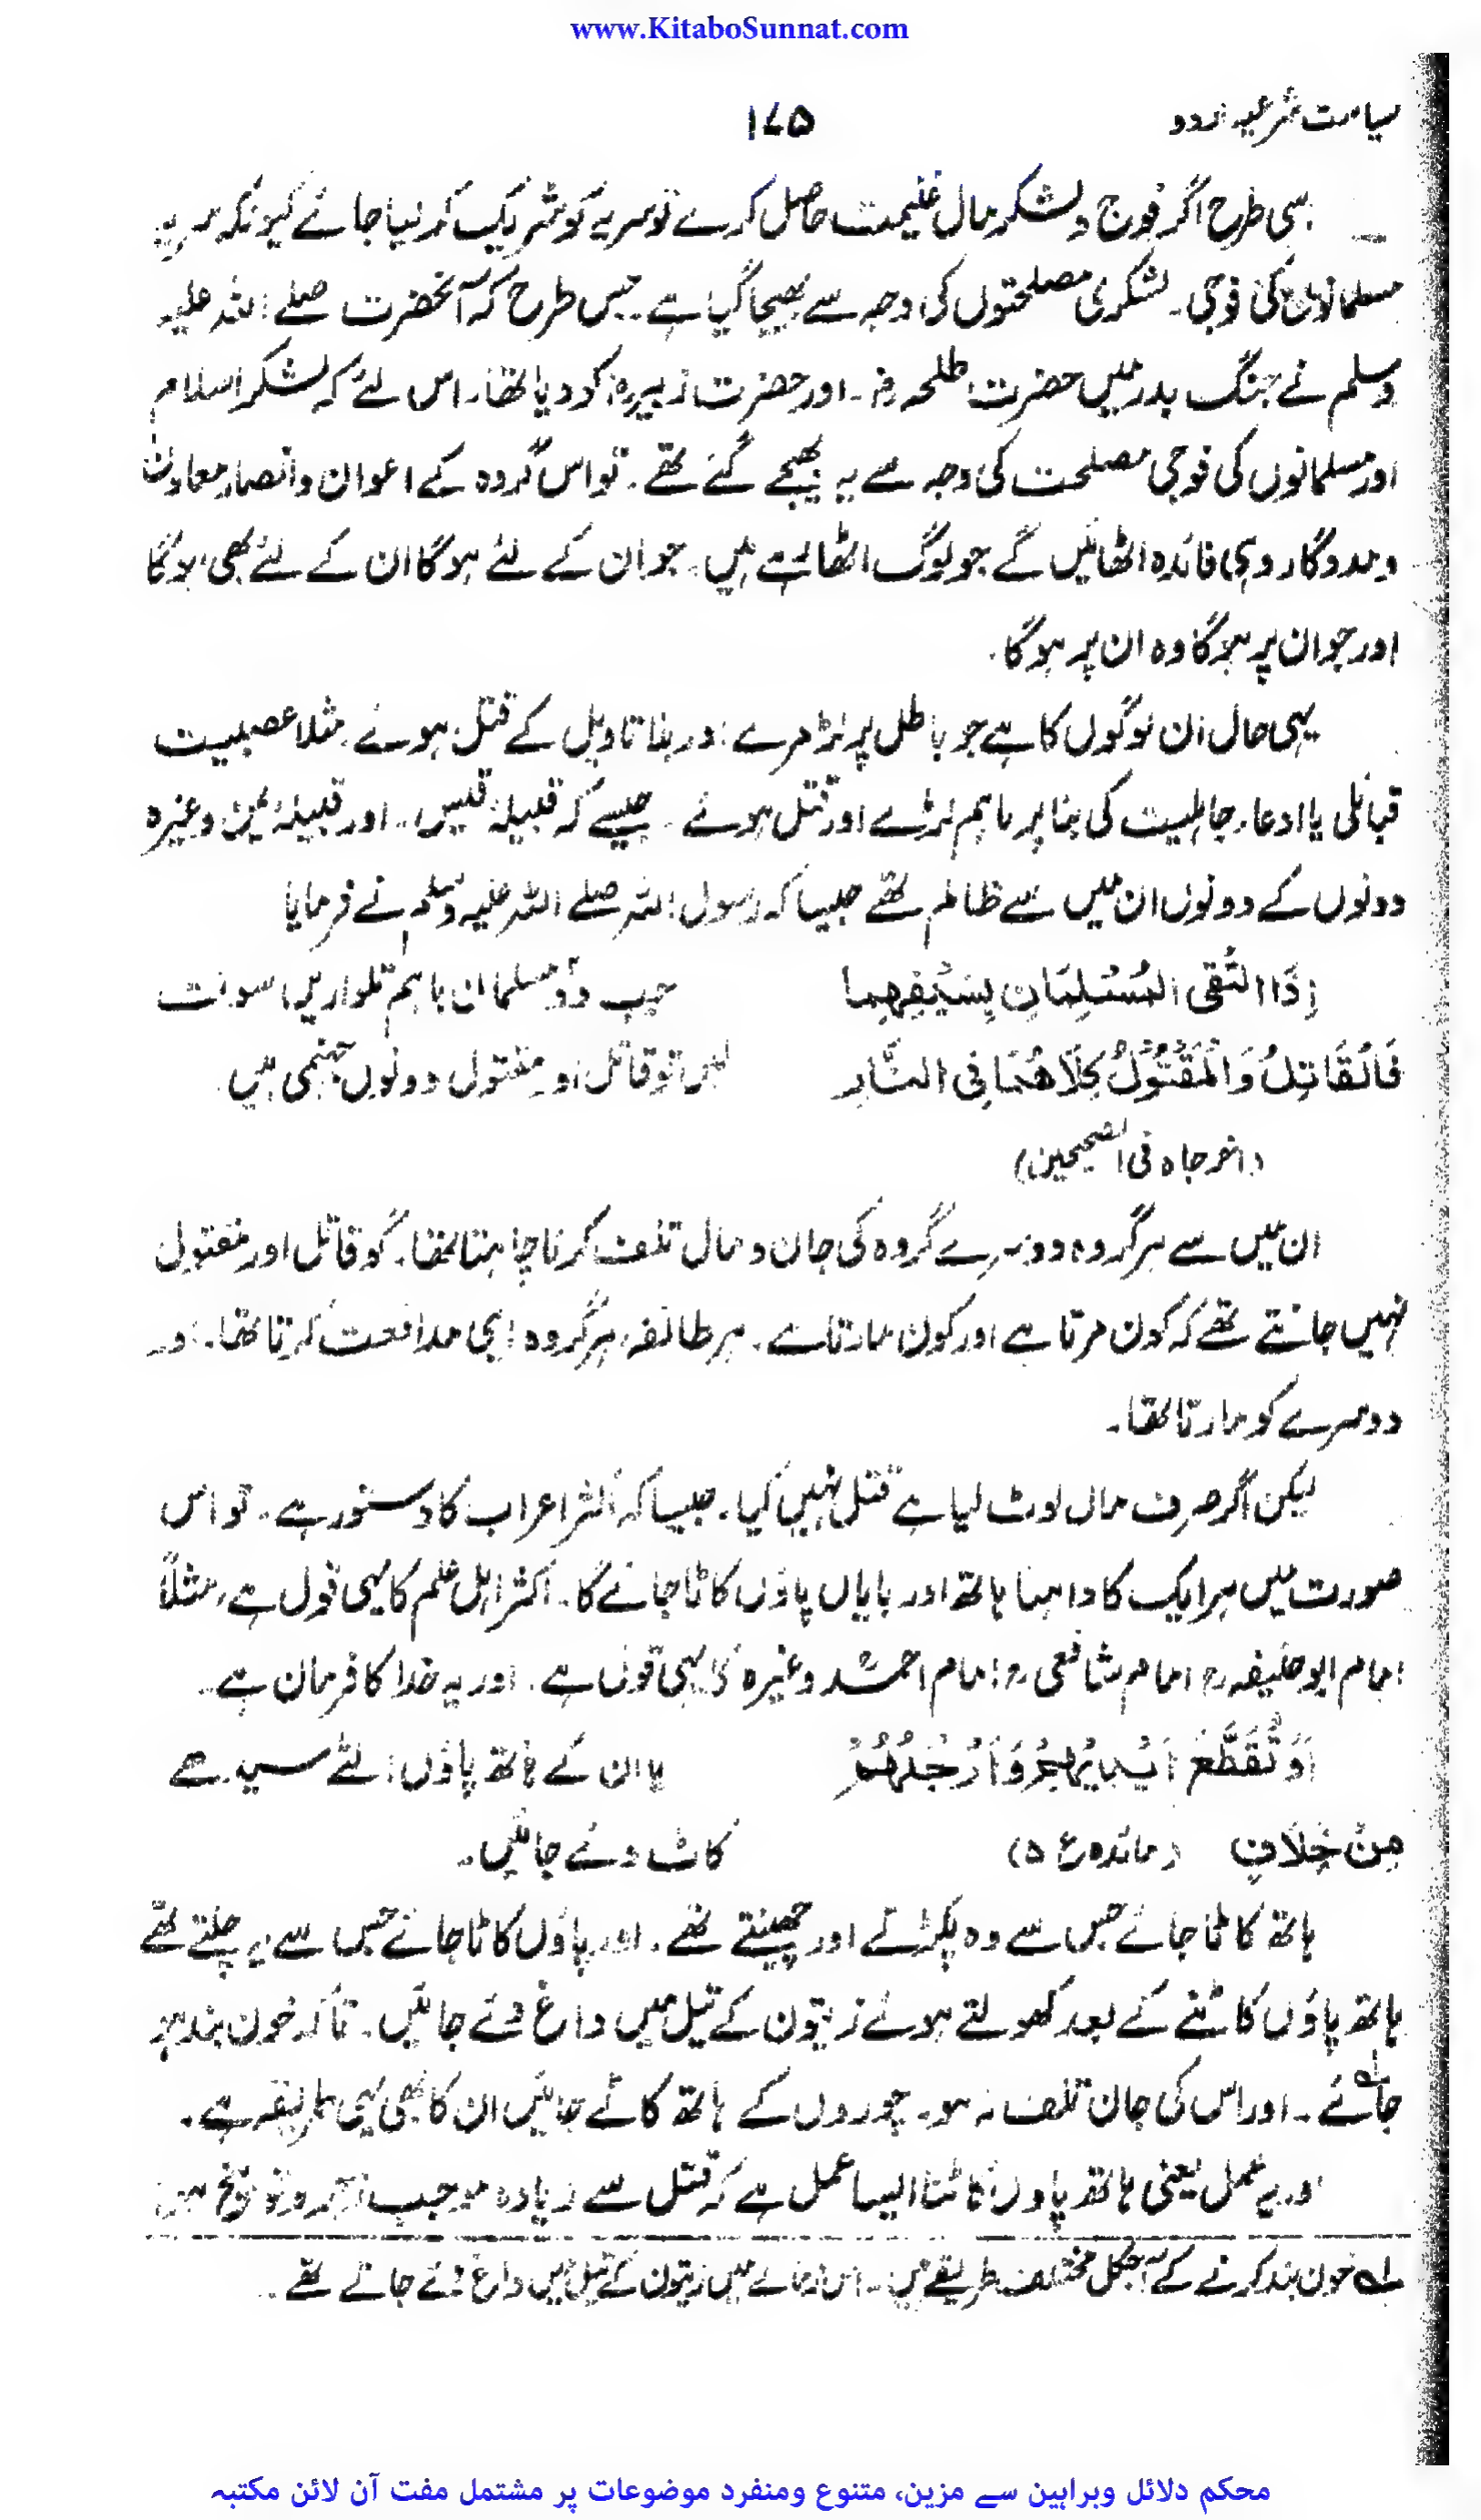 www.KitaboSunnat.com
سیاست شرعیہ اردو
۱۷۵
اسی طرح اگر فوج و لشکر مال غنیمت حاصل کرے تو سریہ کو شریک کر لیا جائے کیونکہ سریہ
مسلمانوں کی فوجی۔ لشکری مصلحتوں کی وجہ سے بھیجا گیا ہے۔ جس طرح کہ آنحضرت صلے اللہ علیہ
وسلم نے جنگ بدر میں حضرت طلحہ رض۔ اور حضرت زبیر رض کو دیا تھا۔ اس لئے کہ لشکر اسلام
اور مسلمانوں کی فوجی مصلحت کی وجہ سے یہ بھیجے گئے تھے۔ تو اس گروہ کے اعوان و انصار معاون
و مددگار وہی فائدہ اٹھائیں گے جو لوگ اٹھا رہے ہیں۔ جو ان کے لئے ہوگا ان کے لئے بھی ہوگا
اور جو ان پر ہوگا وہ ان پر ہوگا۔
یہی حال ان لوگوں کا ہے جو باطل پر لڑ مرے اور بنا تاویل کے قتل ہوئے۔ مثلا عصبیت
قبائلی یا ادعاء جاہلیت کی بنا پر باہم لڑے اور قتل ہوئے۔ جیسے کہ قبیلۂ قیس۔ اور قبیلۂ یمن وغیرہ
دونوں کے دونوں ان میں سے ظالم تھے جیسا کہ رسول اللہ صلے اللہ علیہ وسلم نے فرمایا
اِذَا الْتَقَى الْمُسْلِمَانِ بِسَيْفِهِمَا
جب دو مسلمان باہم تلواریں سونت
فَالْقَاتِلُ وَالْمَقْتُوْلُ كِلَاهُمَا فِى النَّارِ
لیں تو قاتل اور مقتول دونوں جہنمی ہیں۔
(اخرجاہ فی الصحیحین)
ان میں سے ہر گروہ دوسرے گروہ کی جان و مال تلف کرنا چاہتا تھا۔ گو قاتل اور مقتول
نہیں جانتے تھے کہ کون مرتا ہے اور کون مارتا ہے۔ ہر طائفہ ہر گروہ اپنی مدافعت کرتا تھا۔ اور
دوسرے کو مارتا تھا۔
لیکن اگر صرف مال لوٹ لیا ہے قتل نہیں کیا۔ جیسا کہ اکثر اعراب کا دستور ہے۔ تو اس
صورت میں ہر ایک کا داہنا ہاتھ اور بایاں پاؤں کاٹا جائے گا۔ اکثر اہل علم کا یہی قول ہے، مثلاً
امام ابو حنیفہ رح امام شافعی رح امام احمد وغیرہ کا یہی قول ہے۔ اور یہ خدا کا فرمان ہے۔
اَوْ تُقَطَّعَ اَيْدِيْهِمْ وَاَرْجُلُهُمْ
یا ان کے ہاتھ پاؤں الٹے سیدھے
مِنْ خِلَافٍ (مائدہ ع ۵)
کاٹ دئے جائیں۔
ہاتھ کاٹا جائے جس سے وہ پکڑتے اور چھینتے تھے۔ اور پاؤں کاٹا جائے جس سے یہ چلتے تھے
ہاتھ پاؤں کاٹنے کے بعد کھولتے ہوئے زیتون کے تیل میں داغ دئے جائیں۔ تاکہ خون بند ہو
جائے۱۔ اور اس کی جان تلف نہ ہو۔ چوروں کے ہاتھ کاٹے جائیں ان کا بھی یہی طریقہ ہے۔
اور یہ عمل یعنی ہاتھ پاؤں کاٹنا ایسا عمل ہے کہ قتل سے زیادہ موجب زجر و توبیخ ہے۔
۱ خون بند کرنے کے آجکل مختلف طریقے ہیں۔ اس زمانے میں زیتون کے تیل میں داغ دئے جاتے تھے۔
محکم دلائل وبراہین سے مزین، متنوع ومنفرد موضوعات پر مشتمل مفت آن لائن مکتبہ